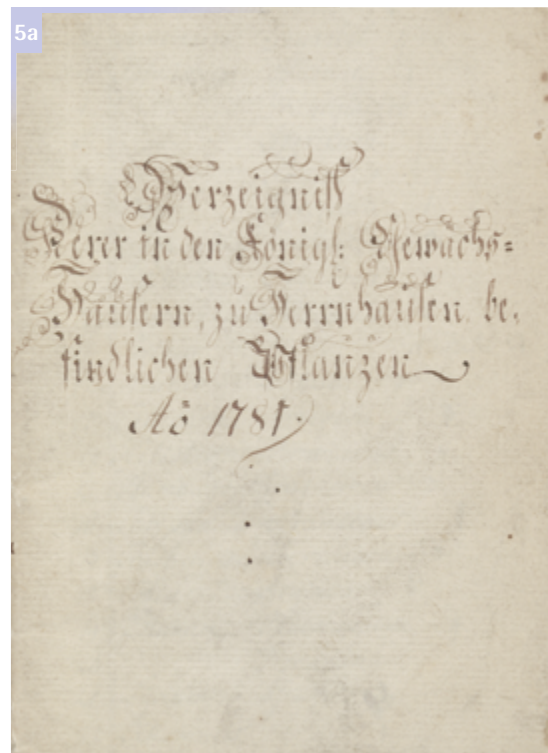 5a
Verzeigniß
Derer in den Königl: Gewächs=
Häusern, zu Herrnhausen, be,
findlichen Pflanzen
Aõ 1781.